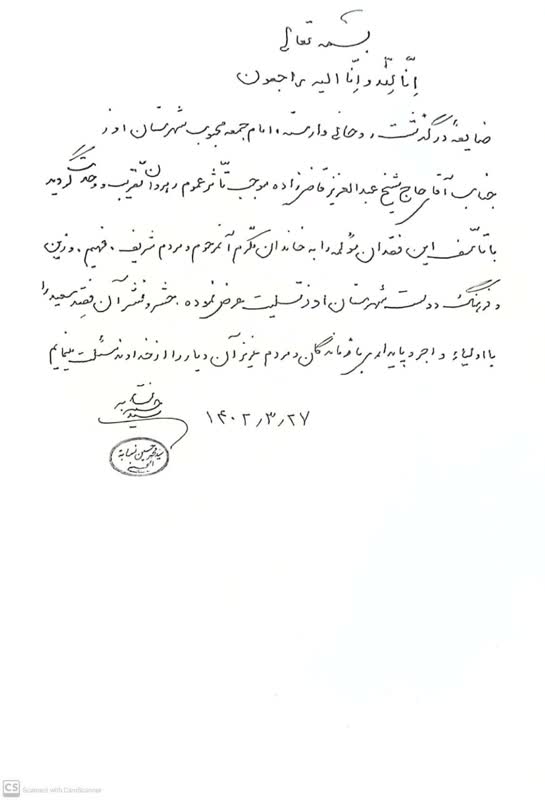 بسمه تعالی
إنّا لِلّه و إنّا الیه راجعون
ضایعهٔ درگذشت روحانی وارسته، امام جمعه محبوب شهرستان اوز
جناب آقای حاج شیخ عبدالعزیز قاضی زاده موجب تأثر عموم رهروان تقریب و وحدت گردید
با تأسف این فقدان مؤلمه را به خاندان مکرم آنمرحوم و مردم شریف، فهیم، وزین
و فرهنگ دوست شهرستان اوز تسلیت عرض نموده، حشر و نشر آن فقید سعید را
با اولیاء و اجر و پایداری بازماندگان و مردم عزیز آن دیار را از خداوند مسئلت مینمایم
۱۴۰۲/۳/۲۷
سید حسین نسابه
سید محمد حسین نسابه
CS Scanned with CamScanner